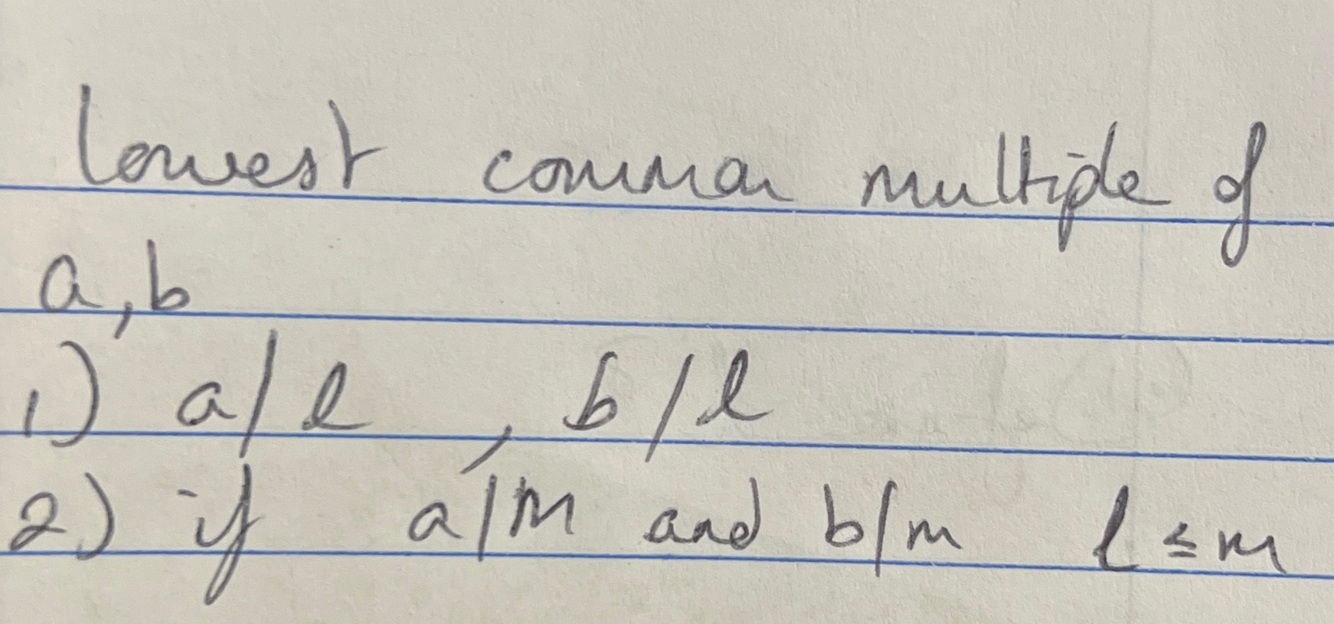 lowest common multiple of
a, b
1) a/l , b/l
2) if a/m and b/m l ≤ m